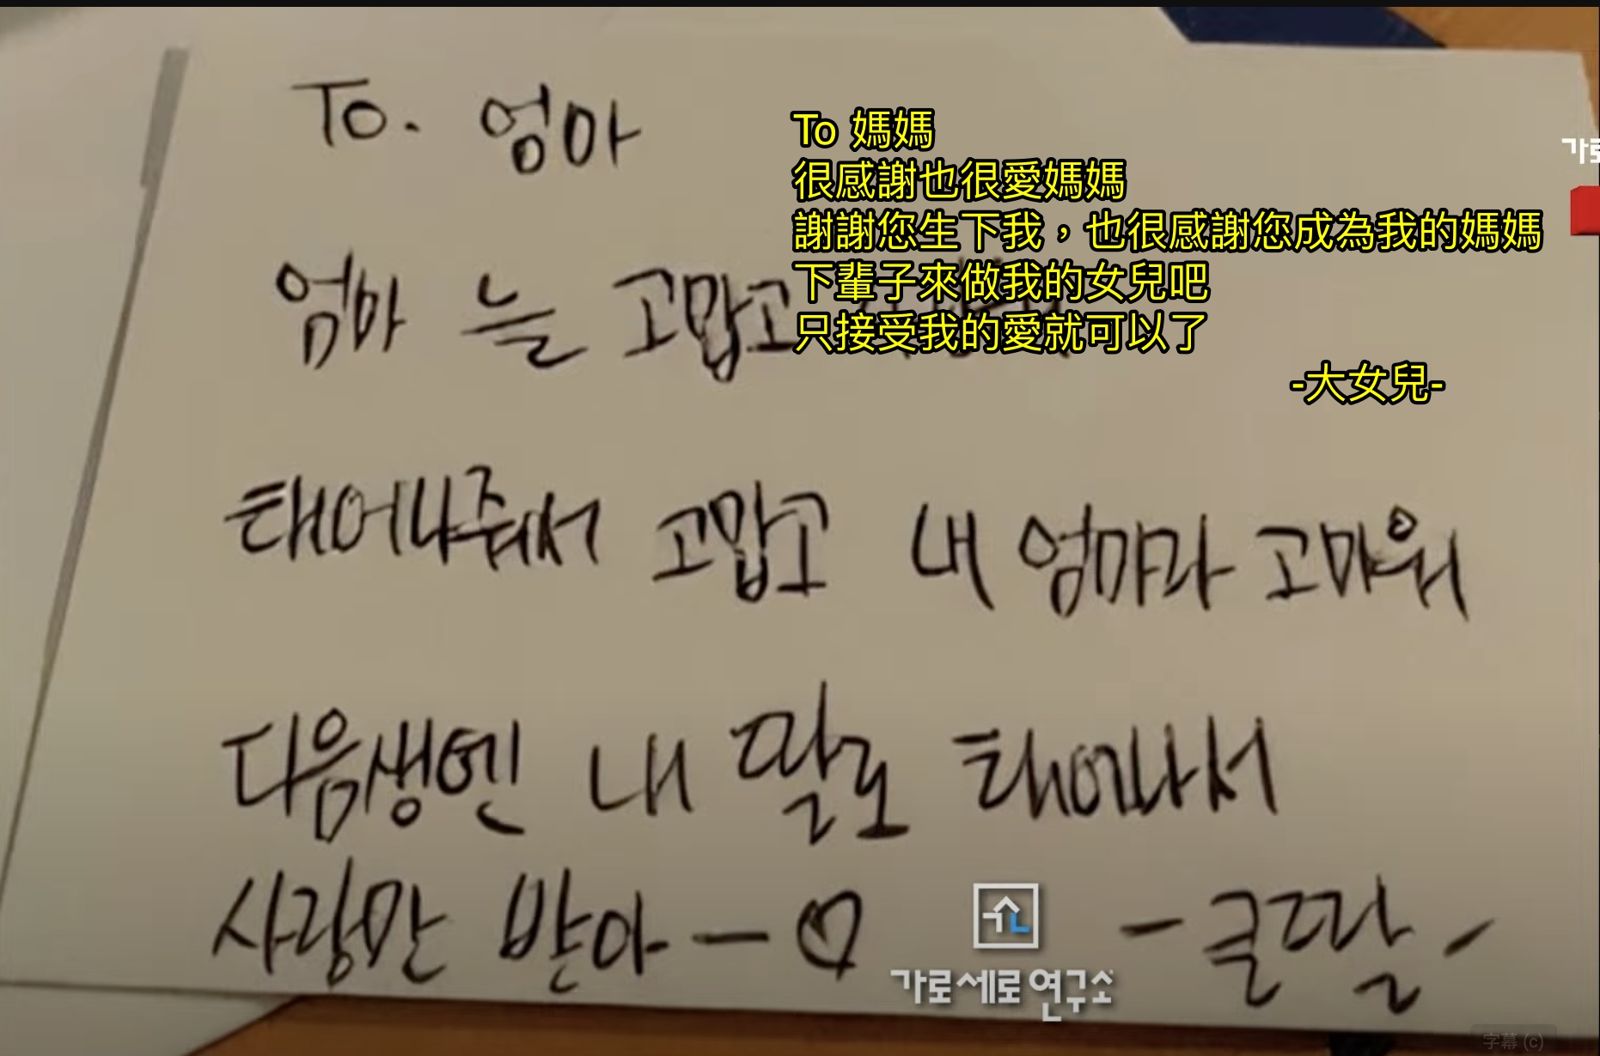 To. 엄마
To 媽媽
很感謝也很愛媽媽
謝謝您生下我，也很感謝您成為我的媽媽
下輩子來做我的女兒吧
只接受我的愛就可以了
-大女兒-
가로
엄마 늘 고맙고
태어나줘서 고맙고 내 엄마라 고마워
다음생엔 내 딸로 태어나서
사랑만 받아 - ♡
- 큰딸 -
가로세로연구소
字幕 (c)